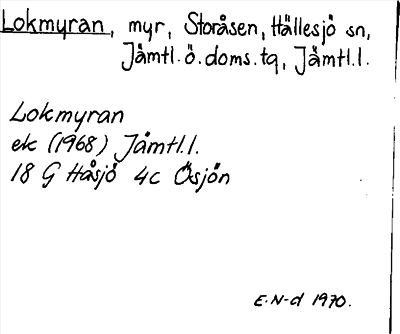 Lokmyran, myr, Storåsen, Hällesjö sn,
Jämtl.ö.doms.tq, Jämtl.l.
Lokmyran
ek (1968) Jämtl.l.
18 G Håsjö 4c Ösjön
E.N-d 1970.